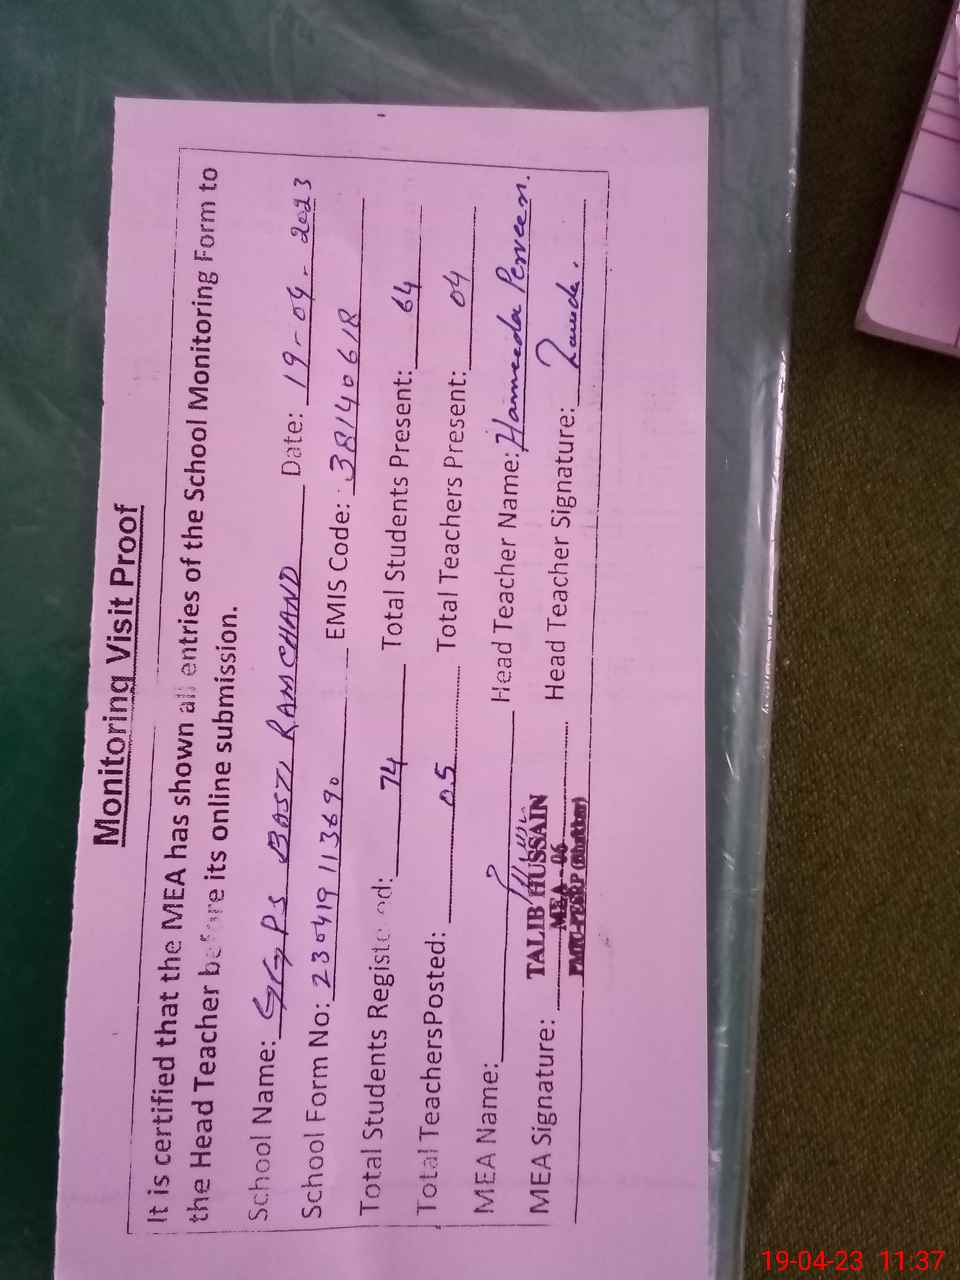 Monitoring Visit Proof
It is certified that the MEA has shown all entries of the School Monitoring Form to
the Head Teacher before its online submission.
School Name: GGPS BASTI RAM CHAND Date: 19-04-2023
School Form No: 230419113690 EMIS Code: 38140618
Total Students Registered: 74 Total Students Present: 64
Total TeachersPosted: 05 Total Teachers Present: 04
MEA Name: Head Teacher Name: Hameeda Perveen.
TALIB HUSSAIN
MEA Signature: MEA-06 Head Teacher Signature:
19-04-23 11:37